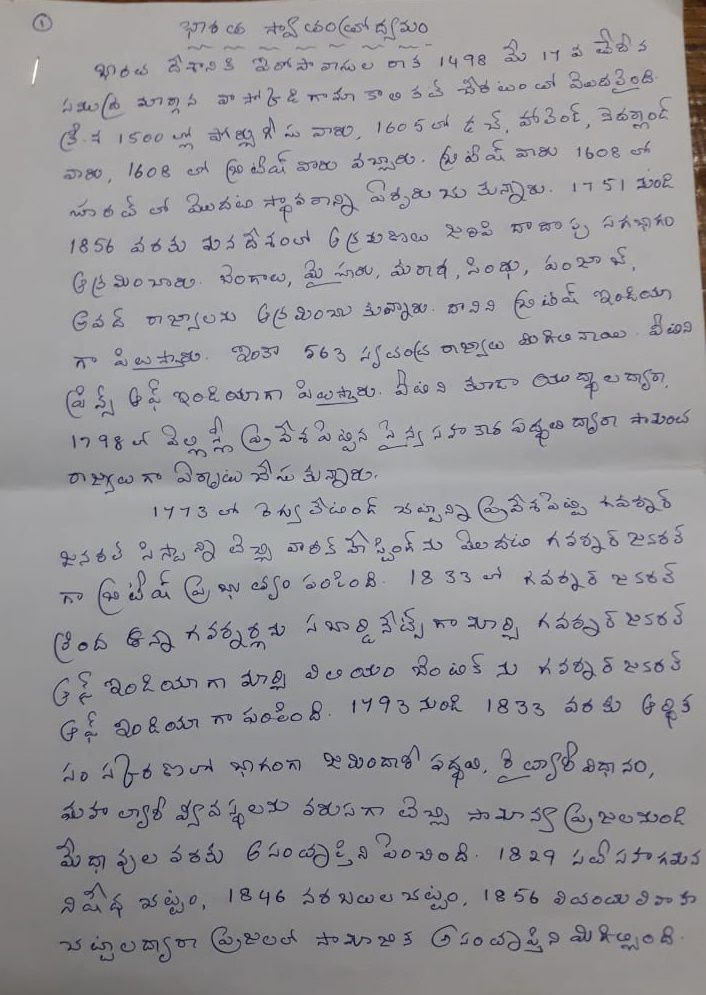 ①
భారత స్వాతంత్రోద్యమం
భారత దేశానికి విదేశీవాదుల రాక 1498 మే 17 వ తేదీన
సముద్ర మార్గాన వాస్కోడిగామా కాలికట్ చేరటంతో మొదలైంది.
క్రీ.శ 1500 ల్లో పోర్చుగీసు వారు, 1605 లో డచ్, హాలెండ్, నెదర్లాండ్
వారు, 1608 లో బ్రిటీష్ వారు వచ్చారు. బ్రిటీష్ వారు 1608 లో
సూరత్ లో మొదట స్థావరాన్ని ఏర్పరుచుకున్నారు. 1751 నుండి
1856 వరకు మన దేశంలో ఆక్రమణలు జరిపి దాదాపు సగభాగం
ఆక్రమించారు. బెంగాలు, మైసూరు, మరాఠ, సింధు, పంజాబ్,
అవధ్ రాజ్యాలను ఆక్రమించుకున్నారు. దానిని బ్రిటీష్ ఇండియా
గా పిలుస్తారు. ఇంకా 563 స్వతంత్ర రాజ్యాలు మిగిలినాయి. వీటిని
ప్రిన్స్ ఆఫ్ ఇండియాగా పిలుస్తారు. వీటిని కూడా యుద్ధాల ద్వారా,
1798 లో వెల్లస్లీ ప్రవేశపెట్టిన సైన్య సహకార పద్ధతి ద్వారా సామంత
రాజ్యాలుగా ఏర్పాటు చేసుకున్నారు.
1773 లో రెగ్యులేటింగ్ చట్టాన్ని ప్రవేశపెట్టి గవర్నర్
జనరల్ సిస్టాన్ని తెచ్చి వారన్ హేస్టింగ్ ను మొదటి గవర్నర్ జనరల్
గా బ్రిటీష్ ప్రభుత్వం పంపింది. 1833 లో గవర్నర్ జనరల్
క్రింద ఉన్నా గవర్నర్లను సబార్డినేట్స్ గా మార్చి గవర్నర్ జనరల్
ఆఫ్ ఇండియాగా మార్చి విలియం బెంటిక్ ను గవర్నర్ జనరల్
ఆఫ్ ఇండియా గా పంపింది. 1793 నుండి 1833 వరకు ఆర్థిక
సంస్కరణలో భాగంగా జమిందారీ పద్ధతి, రైత్వారీ విధానం,
మహల్వారీ వ్యవస్థలను వరుసగా తెచ్చి సామాన్య ప్రజలనుండి
మేధావుల వరకు అసంతృప్తిని పెంచింది. 1829 సతీసహగమన
నిషేధ చట్టం, 1846 నరబలుల చట్టం, 1856 వితంతు వివాహ
చట్టాల ద్వారా ప్రజలలో సామాజిక అసంతృప్తిని మిగిల్చింది.